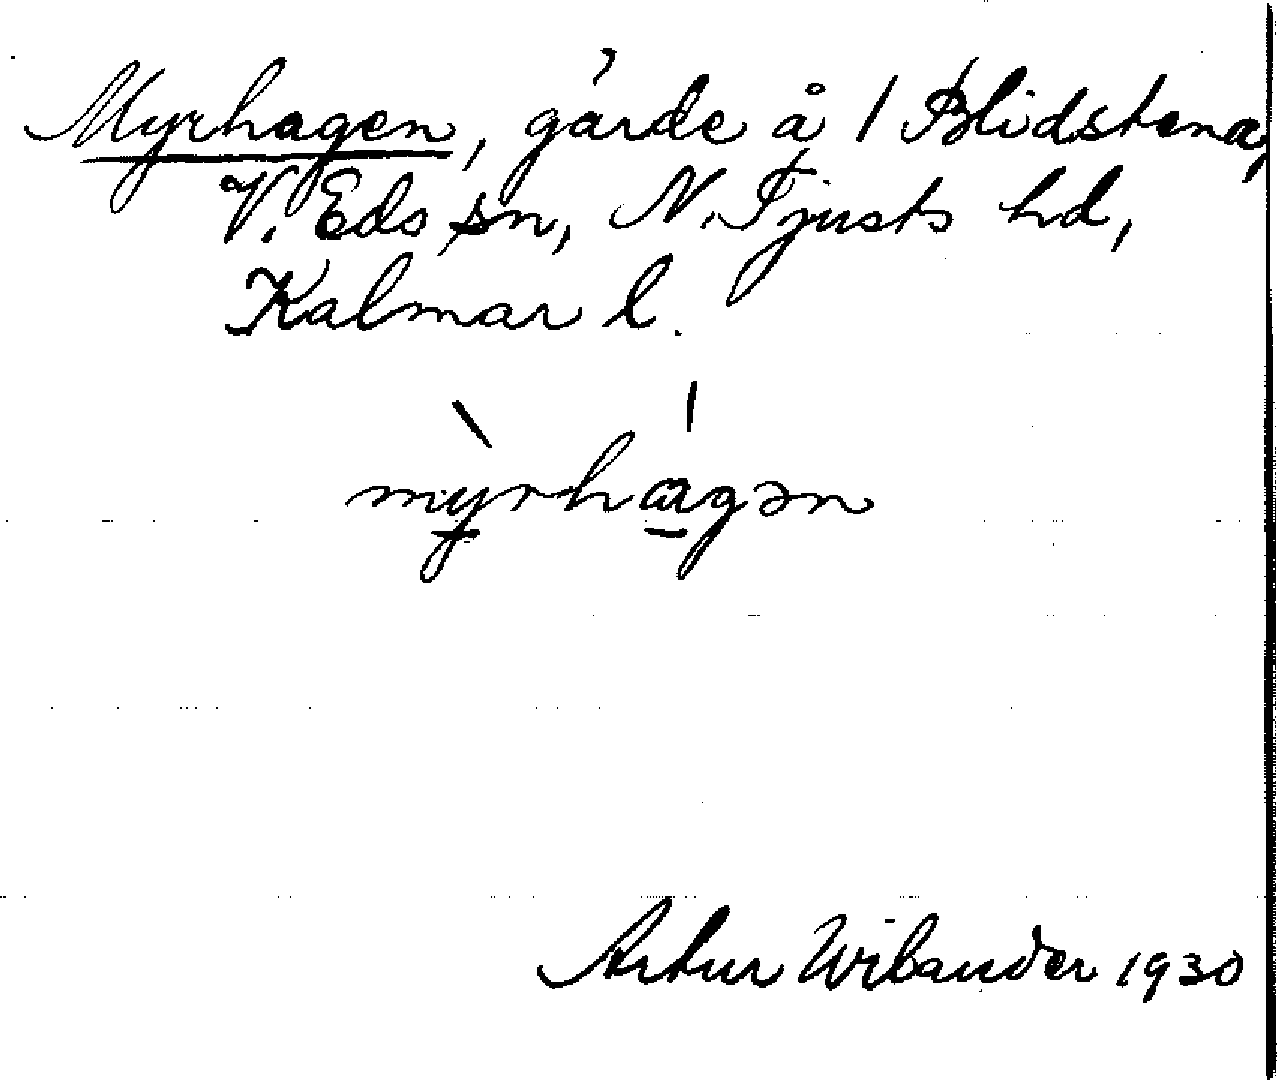 Myrhagen, gärde å 1 Blidstena,
V. Eds sn, N. Tjusts hd,
Kalmar l.
my̠rhɑ̠gən
Artur Wilander 1930